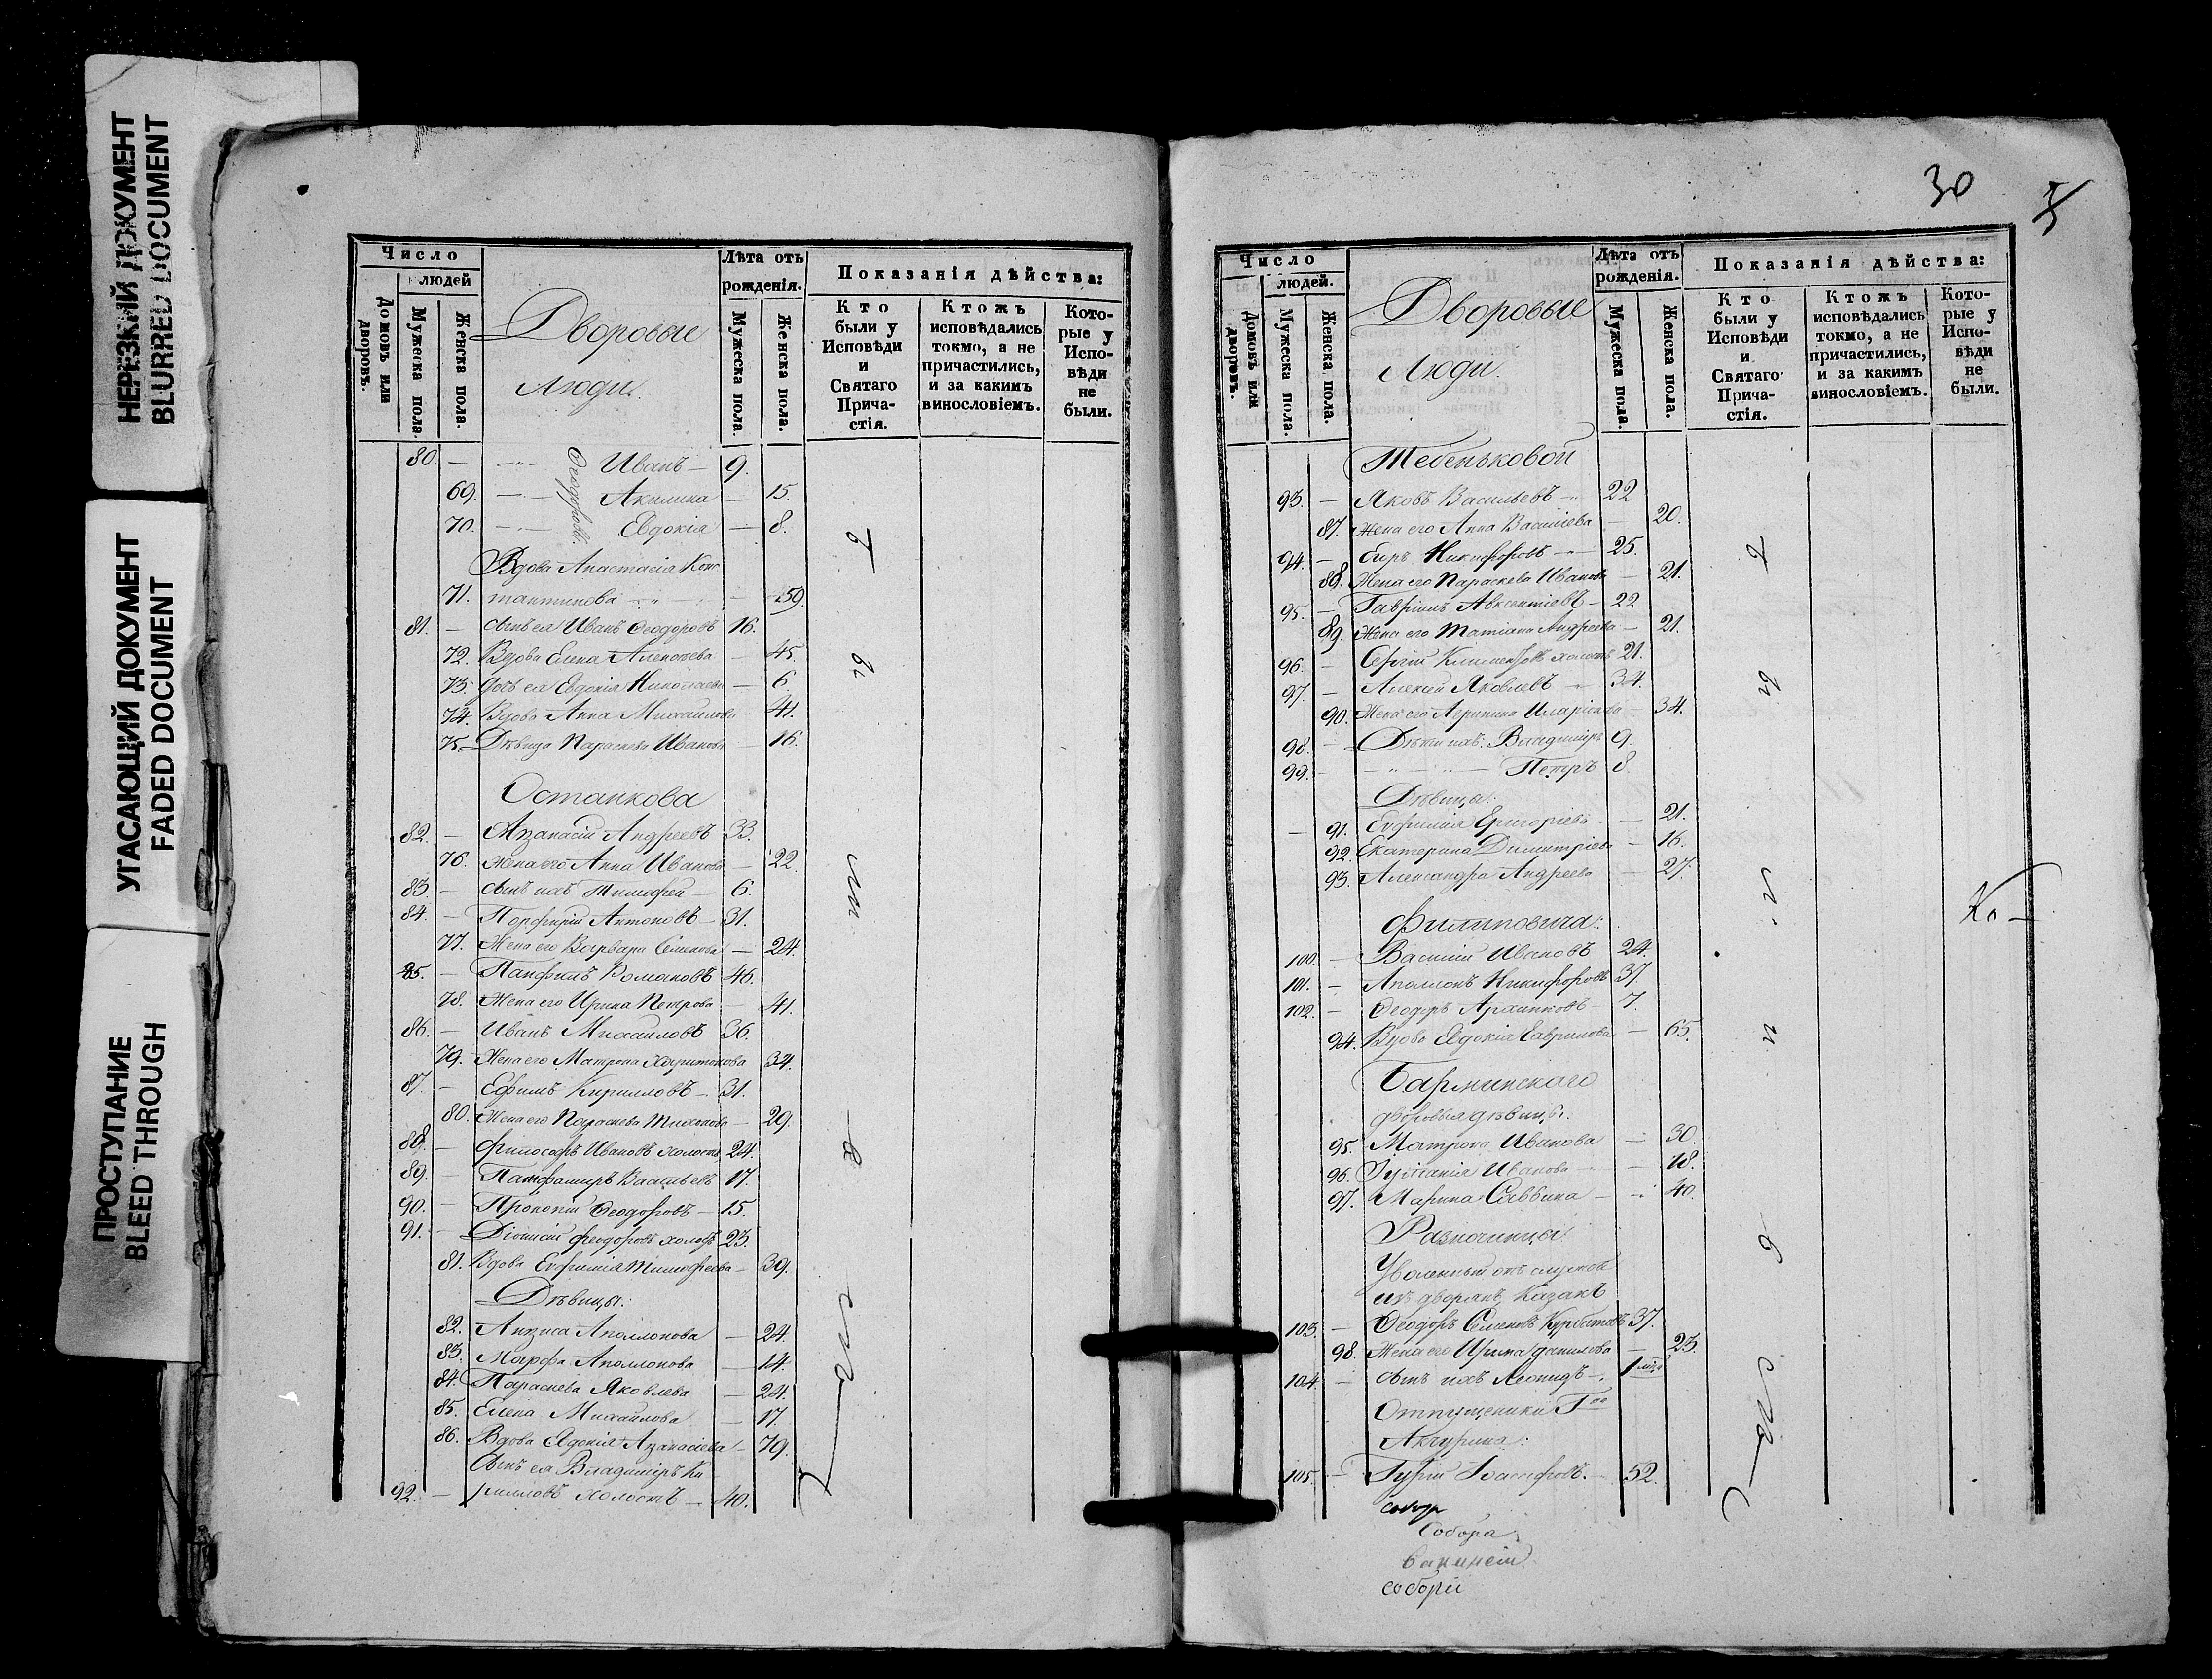 НЕРЕЗКИЙ ДОКУМЕНТ
BLURRED DOCUMENT
УГАСАЮЩИЙ ДОКУМЕНТ
FADED DOCUMENT
ПРОСТУПАНИЕ
BLEED THROUGH
Число
людей
Домовъ или дворовъ.
Мужеска пола.
Женска пола.
Дворовые
люди.
Лѣта отъ рожденія.
Мужеска пола.
Женска пола.
Показанія дѣйства:
Кто были у Исповѣди и Святаго Причастія.
Ктожъ исповѣдались токмо, а не причастились, и за какимъ винословіемъ.
Которые у Исповѣди не были.
80. — Иванъ — 9.
69. — Акилина — 15.
70. — Евдокія — 8.
Вдова Анастасія Конс
71. тантинова — 59.
81. — сынъ ея Иванъ Ѳеодоровъ 16.
72. Вдова Елена — 45.
73. Дочь ея Евдокія Николаева — 6
74. Вдова Анна Михаилова 41.
75. Дѣвица Параскева Иванова — 16.
Останкова
82. — Аѳанасій Андреевъ 33.
76. жена его Анна Иванова — 22.
83. — сынъ ихъ Тимофей — 6.
84. — Порфирій Антоновъ — 31.
77. Жена его Варвара Семенова — 24.
85. — Панфилъ Романовъ 46.
78. Жена его Ирина Петрова — 41.
86. — Иванъ Михаиловъ 36.
79. Жена его Матрона Харитонова 34.
87. — Ефимъ Кирилловъ — 31.
80. Жена его Параскева Тихонова — 29.
88. — Философъ Ивановъ холостъ 24.
89. — Васильевъ 17.
90. — Прокопій Ѳеодоровъ — 15.
91. — Діонисій Феодоровъ холостъ 23.
81. Вдова Евфимія Тимофеева — 39.
Дѣвицы:
82. Анфиса Аполлонова — 24.
83. Марфа Аполлонова — 14.
84. Параскева Яковлева — 24.
85. Елена Михаилова — 17.
86. Вдова Евдокія Аѳанасіева — 79.
Сынъ ея Владиміръ Ки
92. — рилловъ холостъ — 40.
30
Число
людей.
Домовъ или дворовъ.
Мужеска пола.
Женска пола.
Дворовые
Люди.
Лѣта отъ рожденія.
Мужеска пола.
Женска пола.
Показанія дѣйства:
Кто были у Исповѣди и Святаго Причастія.
Ктожъ исповѣдались токмо, а не причастились, и за какимъ винословіемъ.
Которые у Исповѣди не были.
Тебеньковой
93. — Яковъ Васильевъ — 22
87. Жена его Анна Василіева — 20.
94. — Никифоровъ — 25.
88. Жена его Параскева Иванова — 21.
95. — Гавріилъ Авксентіевъ — 22
89. Жена его Татіана Андреева — 21.
96. — Сергій Климентовъ холостъ 21.
97. — Алексій Яковлевъ — 34.
90. Жена его Агрипина Иларіонова — 34.
98. — Дѣти ихъ: Владиміръ 9.
99. — Петръ 8.
Дѣвицы:
91. Евфимія Григоріева — 21.
92. Екатерина Димитріева — 16.
93. Александра Андреева — 27.
Филиповича:
100. — Василій Ивановъ 24.
101. — Аполлонъ Никифоровъ 37
102. — Ѳеодоръ Архиповъ — 7.
94. Вдова Евдокія Гаврилова — 65.
Барминскаго
дворовыя дѣвицы.
95. Матрона Иванова — 30.
96. Іуліанія Иванова — 18.
97. Марина Саввина — 40.
Разночинцы
Уволенный отъ службы
изъ дворянъ казакъ
103. — Ѳеодоръ Семеновъ Курбатовъ 37.
98. Жена его Ирина Данилова — 23.
104. — сынъ ихъ Леонидъ — 1
Отпущеники
Акчурина:
105. — Гурій 52.
Собора
собори